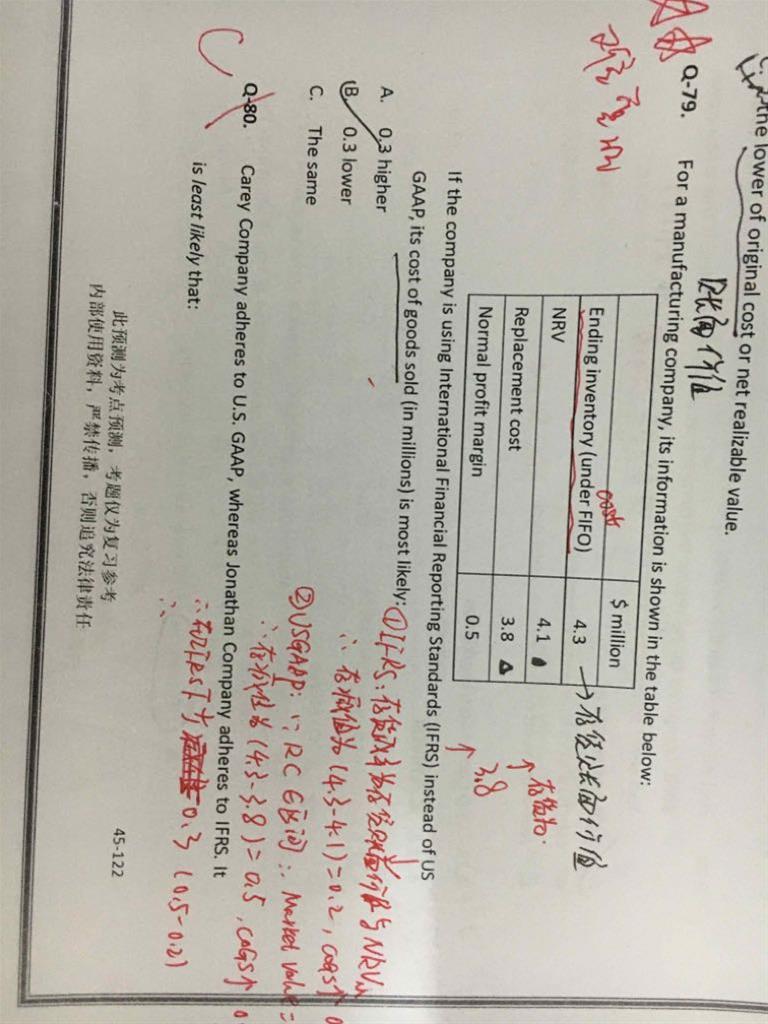 C. the lower of original cost or net realizable value.
账面价值
Q-79. For a manufacturing company, its information is shown in the table below:
$ million
cost
Ending inventory (under FIFO) 4.3 → 存货账面价值
NRV 4.1
存货为
Replacement cost 3.8
3.8
Normal profit margin 0.5
If the company is using International Financial Reporting Standards (IFRS) instead of US
GAAP, its cost of goods sold (in millions) is most likely:
①IFRS:
A. 0.3 higher
∴ (4.3-4.1)=0.2, COGS↑
B. 0.3 lower
②USGAAP: ∵ RC 区间 ∴ Market value =
C. The same
∴ (4.3-3.8)=0.5, COGS↑
Q-80. Carey Company adheres to U.S. GAAP, whereas Jonathan Company adheres to IFRS. It
C
is least likely that:
∴ IFRS 0.3 (0.5-0.2)
此预测为考点预测，考题仅为复习参考
内部使用资料，严禁传播，否则追究法律责任
45-122